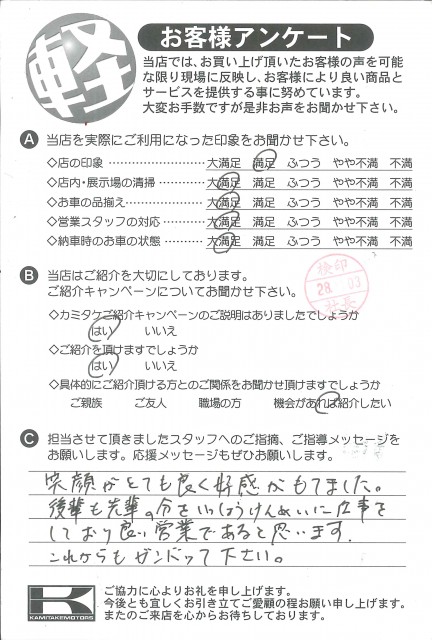 軽
お客様アンケート
当店では、お買い上げ頂いたお客様の声を可能
な限り現場に反映し、お客様により良い商品と
サービスを提供する事に努めています。
大変お手数ですが是非お声をお聞かせ下さい。
A 当店を実際にご利用になった印象をお聞かせ下さい。
◇店の印象 大満足 満足 ふつう やや不満 不満
◇店内・展示場の清掃 大満足 満足 ふつう やや不満 不満
◇お車の品揃え 大満足 満足 ふつう やや不満 不満
◇営業スタッフの対応 大満足 満足 ふつう やや不満 不満
◇納車時のお車の状態 大満足 満足 ふつう やや不満 不満
B 当店はご紹介を大切にしております。
ご紹介キャンペーンについてお聞かせ下さい。
検印
28. 03
社長
◇カミタケご紹介キャンペーンのご説明はありましたでしょうか
はい いいえ
◇ご紹介を頂けますでしょうか
はい いいえ
◇具体的にご紹介頂ける方とのご関係をお聞かせ頂けますでしょうか
ご親族 ご友人 職場の方 機会があれば紹介したい
C 担当させて頂きましたスタッフへのご指摘、ご指導メッセージを
お願いします。応援メッセージもぜひお願いします。
笑顔がとても良く好感がもてました。
後輩も先輩の分をいっしょうけんめいに仕事を
しており良い営業であると思います。
これからもガンバって下さい。
K
KAMITAKEMOTORS
ご協力に心よりお礼を申し上げます。
今後とも宜しくお引き立てご愛顧の程お願い申し上げます。
またのご来店を心からお待ちしております。